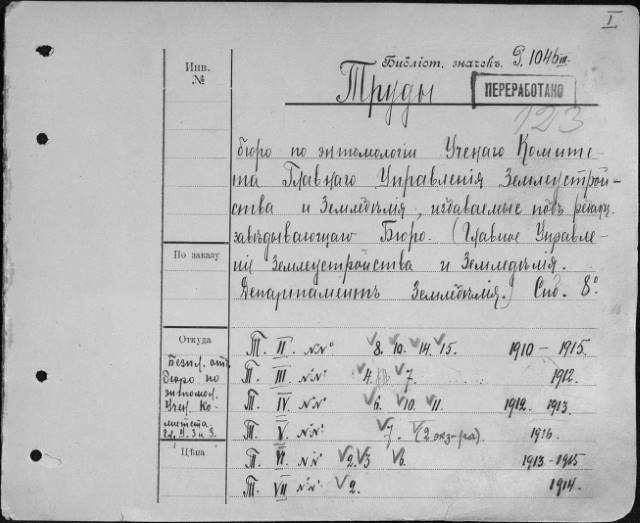 I
Библіот. значекъ P. 1046 III
Инв. №
Труды
ПЕРЕРАБОТАНО
123
бюро по энтомологіи Ученаго Комите-
та Главнаго Управленія Землеустрой-
ства и Земледѣлія, издаваемые подъ редакц.
завѣдывающаго Бюро. (Главное Управле-
По заказу
ніе Землеустройства и Земледѣлія.
Департаментъ Земледѣлія.) Спб. 8°.
Откуда
Безпл. отъ
бюро по
энтомол.
Учен. Ко-
митета
Гл. У. З. и З.
Цѣна
Т. II. №№ 8. 10. 14. 15. 1910 - 1915.
Т. III. №№ 4. 7. 1912.
Т. IV. №№ 6. 10. 11. 1912. 1913.
Т. V. №№ 7. (2 экз-ра). 1916.
Т. VI. №№ 2. 3 6. 1913 - 1915
Т. VII №№ 2. 1914.